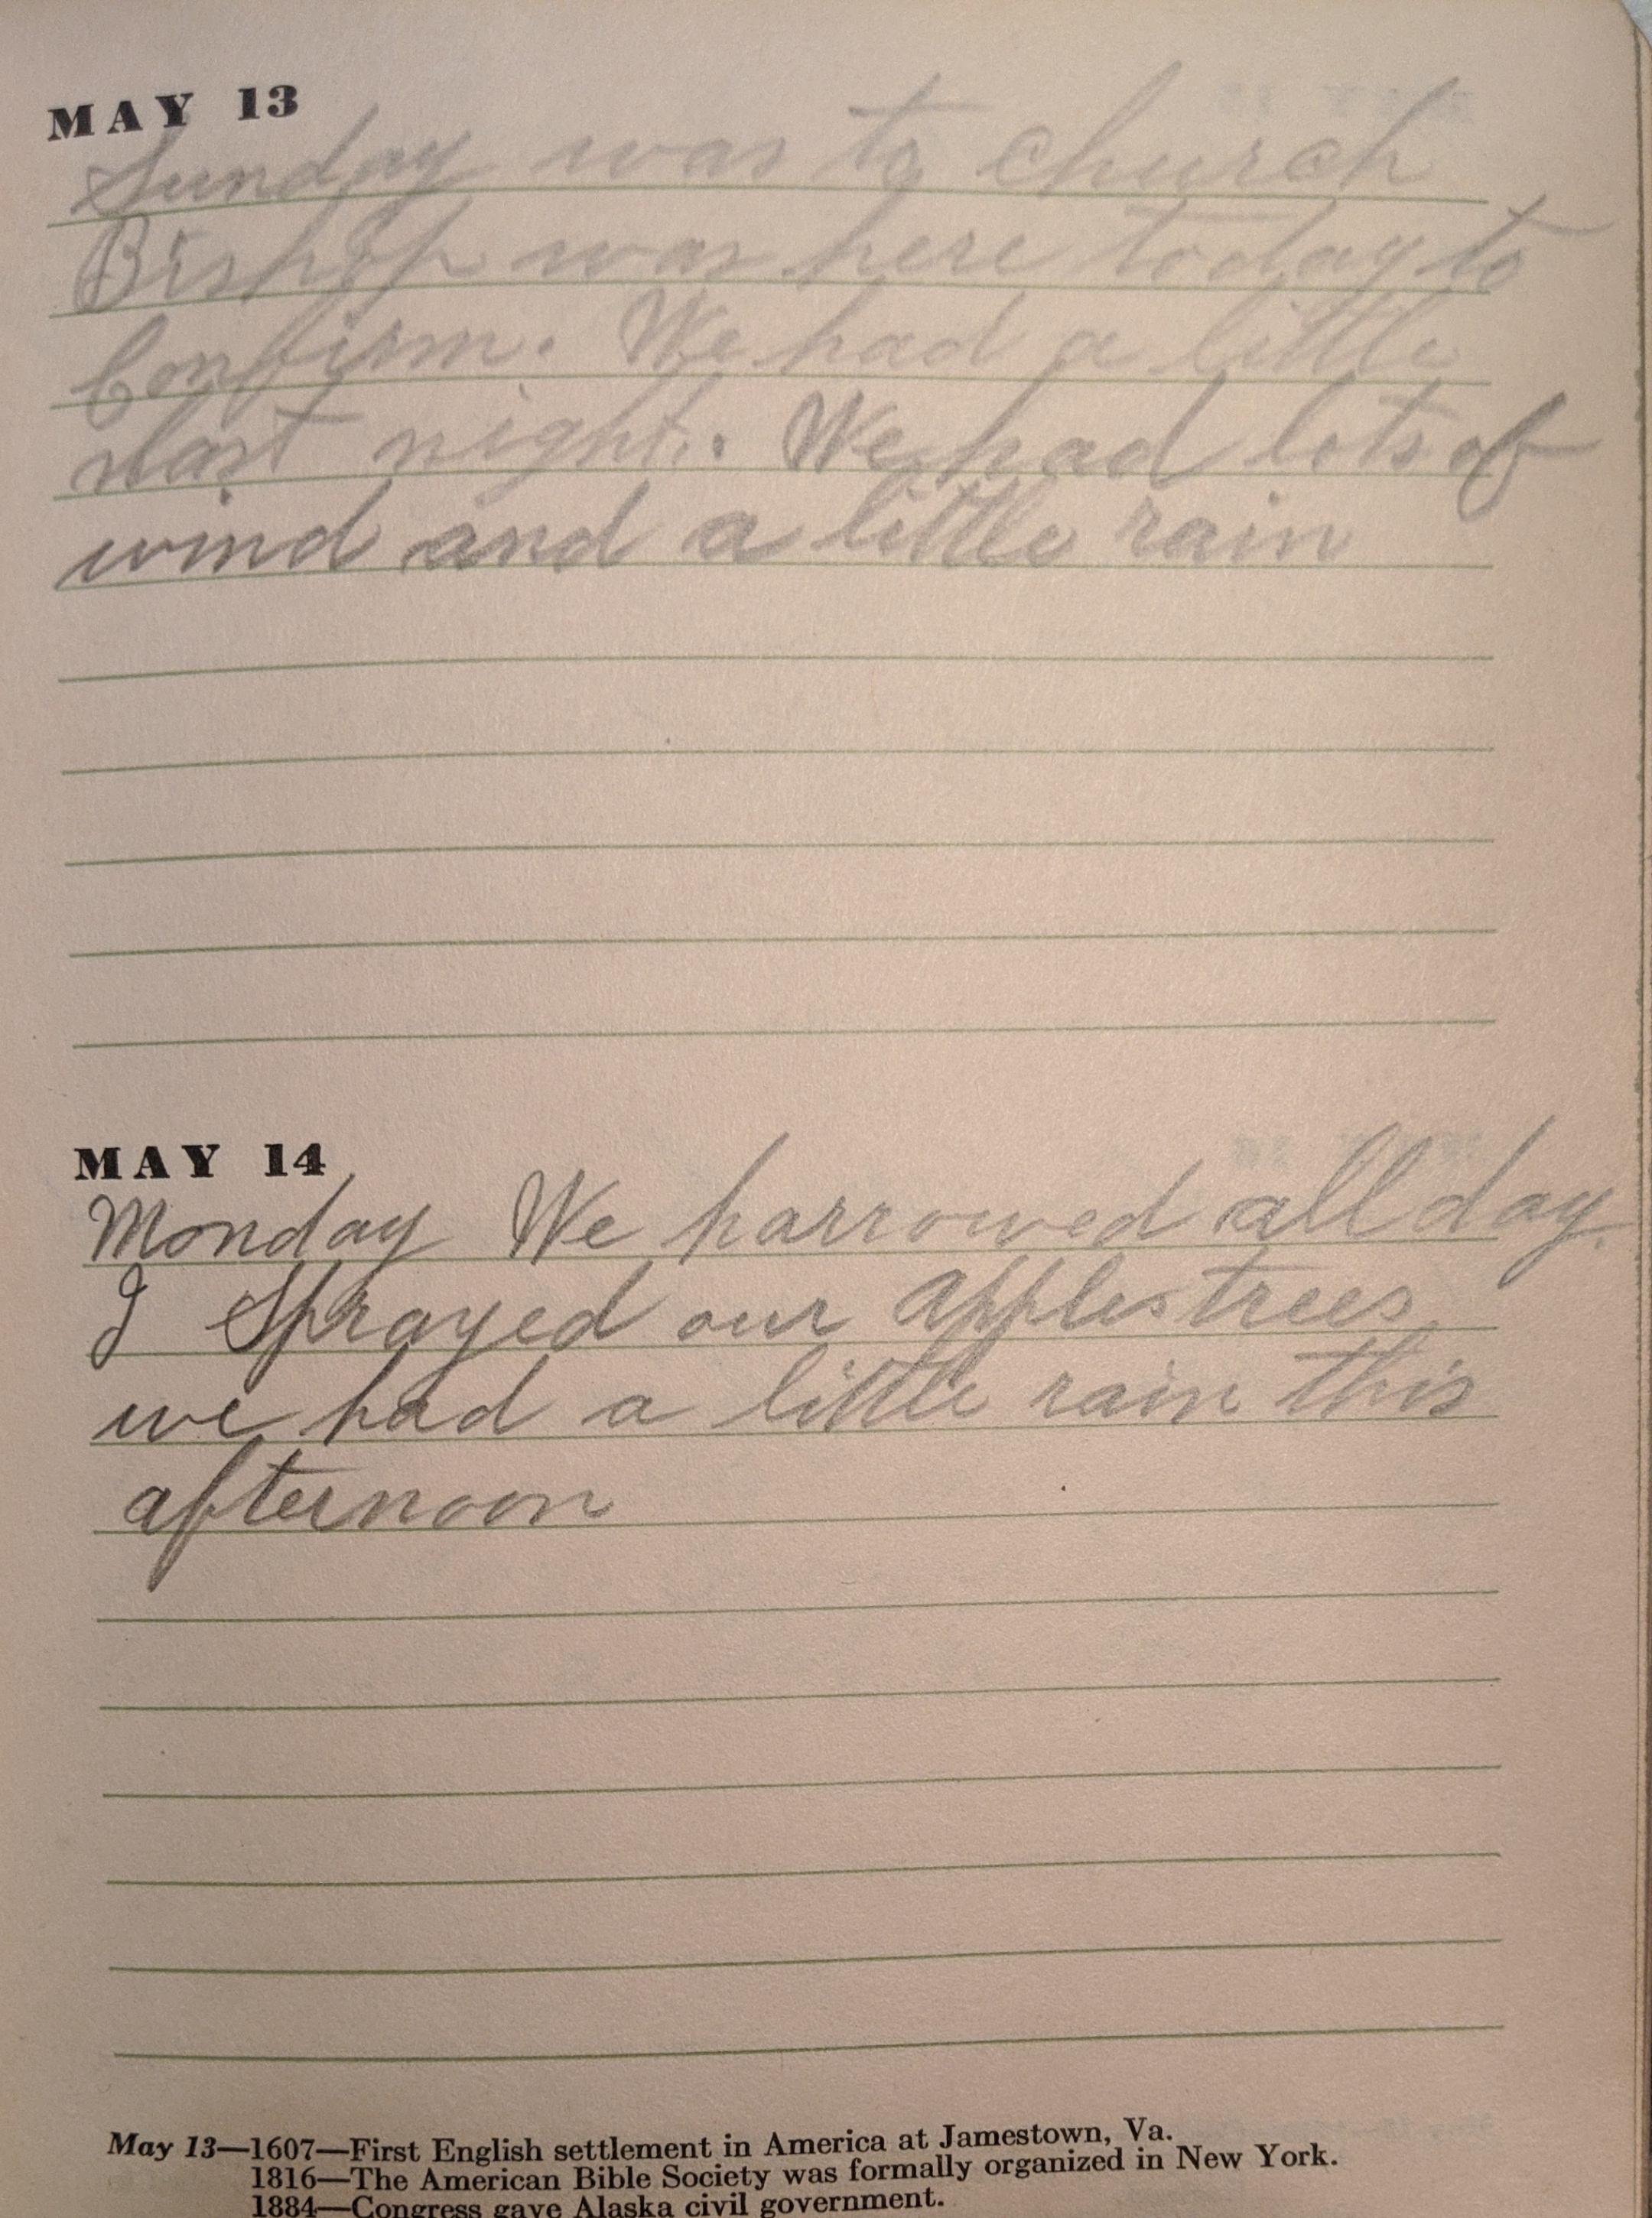 MAY 13
Sunday was to church
Bishop was here today to
Confirm. We had a little
last night. We had lots of
wind and a little rain
MAY 14
Monday We harrowed all day.
I Sprayed our apples trees
we had a little rain this
afternoon
May 13—1607—First English settlement in America at Jamestown, Va.
1816—The American Bible Society was formally organized in New York.
1884—Congress gave Alaska civil government.